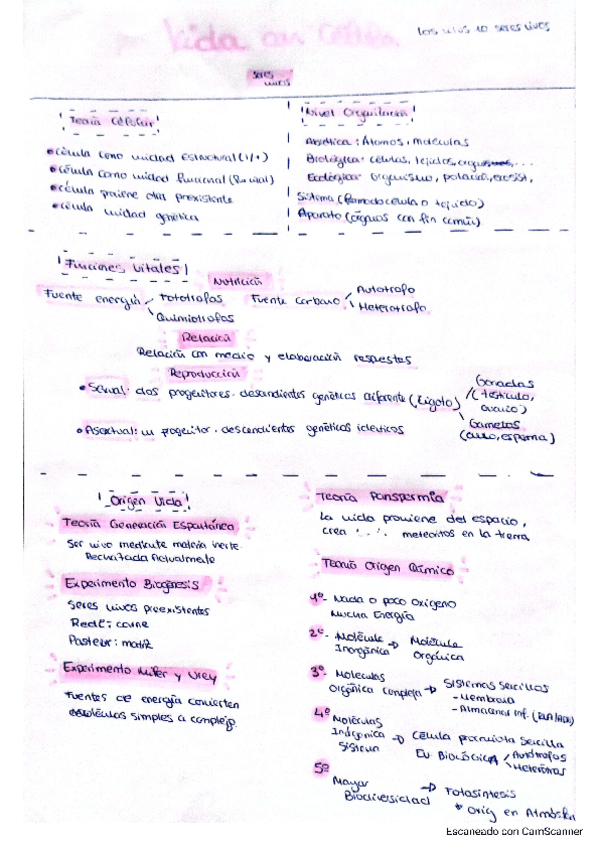 Vida con Célula
Los vivos 10 seres vivos
seres
vivos
Teoría Celular
• célula como unidad estructural (1/+)
• célula como unidad funcional
• célula proviene otra preexistente
• célula unidad genética
Nivel Organización
Abiótica: Átomos, moléculas
Biológica: células, tejidos, organismos,...
Ecológica: organismo, población, ecosist,
Sistema (formado célula o tejido)
Aparato (órganos con fin común)
Funciones Vitales
Nutrición
Fuente energía
Fototrofos
Quimiotrofos
Fuente carbono
Autotrofo
Heterotrofo
Relación
Relación con medio y elaboración respuestas
Reproducción
• Sexual: dos progenitores. descendientes genética diferente (Zigoto)
Gónadas
(testículo,
ovario)
Gametos
(óvulo, esperma)
• Asexual: un progenitor. descendientes genéticos idénticos
Origen Vida
Teoría Generación Espontánea
Ser vivo mediante materia inerte
Rechazada Actualmente
Experimento Biogénesis
Seres vivos preexistentes
Redi: carne
Pasteur: matriz
Experimento Miller y Urey
Fuentes de energía convierten
moléculas simples a complejo
Teoría Panspermia
La vida proviene del espacio,
crea meteoritos en la tierra
Teoría Origen Químico
1º- Nada o poco oxígeno
Mucha Energía
2º- Molécula Inorgánica → Molécula Orgánica
3º- Moleculas Orgánica compleja → Sistemas sencillos
- Membrana
- Almacenar inf. (RNA/ADN)
4º Moléculas
→ Célula procariota sencilla
Ev Biológica
Autótrofos
Heterótrofos
5º
Mayor Biodiversidad → Fotosíntesis
* Orig en Atmósfera
Escaneado con CamScanner